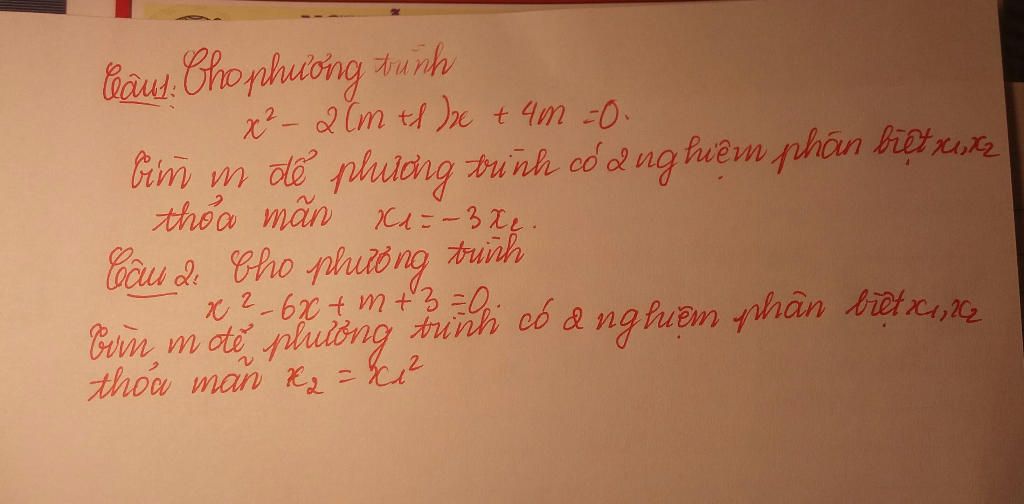 Câu1: Cho phương trình
x² - 2(m+1)x + 4m = 0.
Tìm m để phương trình có 2 nghiệm phân biệt x₁, x₂
thỏa mãn x₁ = -3x₂.
Câu 2: Cho phương trình
x² - 6x + m + 3 = 0.
Tìm m để phương trình có 2 nghiệm phân biệt x₁, x₂
thỏa mãn x₂ = x₁²